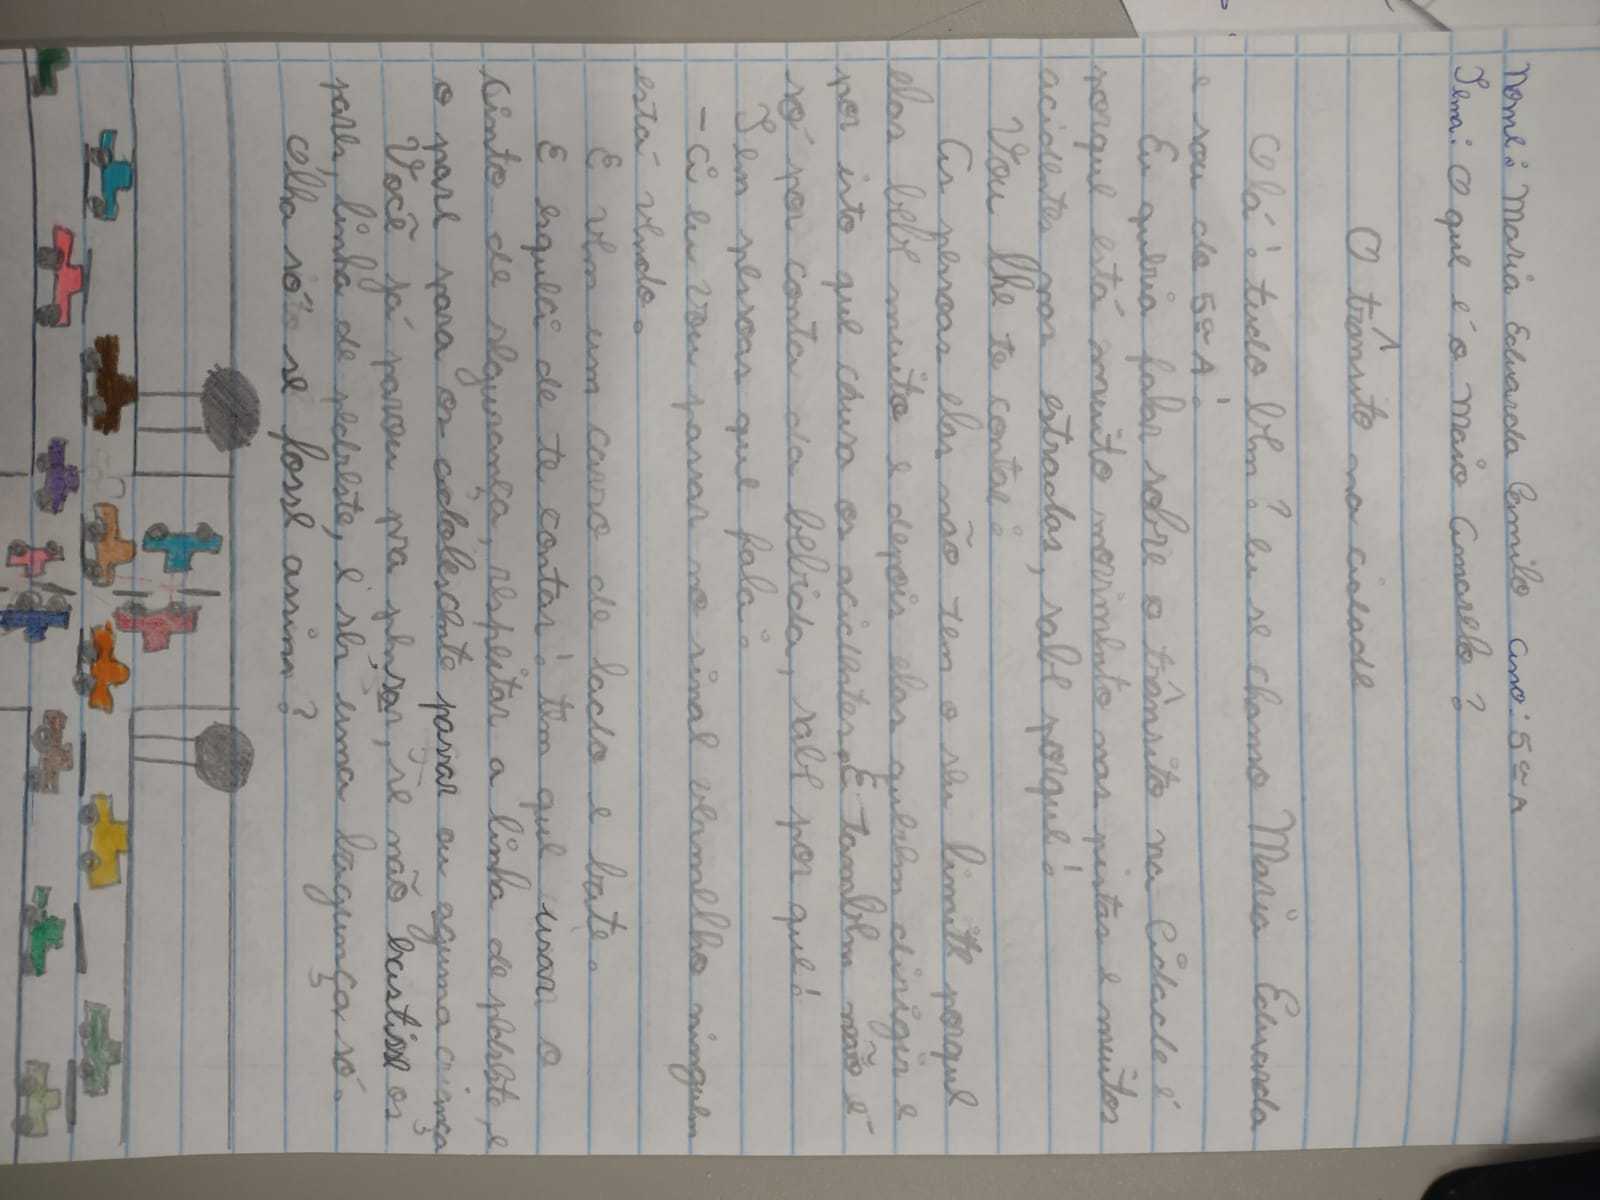 Nome: Maria Eduarda Camilo ano: 5º A
Tema: O que é o maio Amarelo?
O trânsito na cidade
Olá! tudo bem? eu se chamo Maria Eduarda
e sou do 5º A!
Eu queria falar sobre o trânsito na Cidade é
porque está muinto movimento nas pistas e muitos
acidentes nas estradas, sabe porque!
Vou lhe te contar:
As pessoas elas não tem o seu limite porque
elas bebe muinto e depois elas querem dirigir e
por isto que causa os acidentes, E tambem não é
só por conta da bebida, sabe por que!
Tem pessoas que fala:
- A eu vou passar no sinal vermelho ninguem
está vendo.
E vem um carro de lado e bate.
E esqueci de te contar! tem que usar o
sinto de segurança, respeitar a linha de pedreste, e
o pare para os adolescente passar ou aguma criança
Você já parou pra pensar, se não existise os
pares, linha de pedreste, é ser uma bagunça só.
Olha só! se fosse assim?